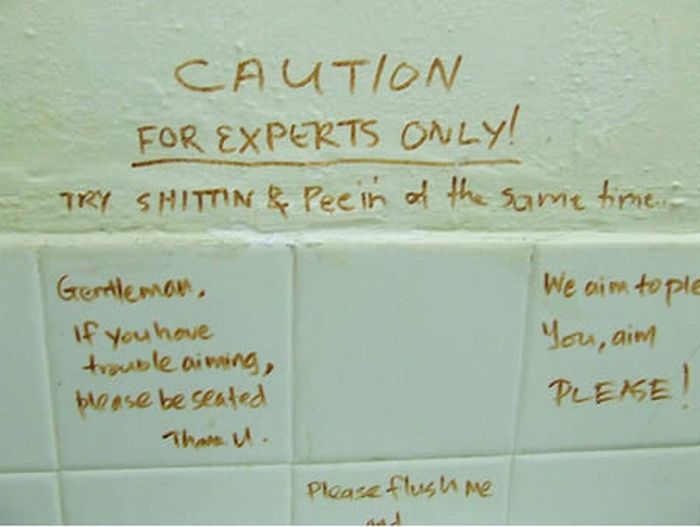 CAUTION
FOR EXPERTS ONLY!
TRY SHITTIN & Pee'in at the same time...
Gentleman,
If you have
trouble aiming,
please be seated
Thank U.
We aim to ple
You, aim
PLEASE!
Please flush me
and